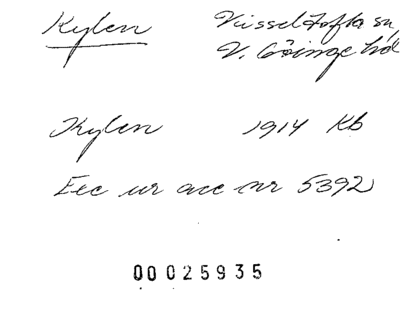 Kylen Visseltofta sn,
V. Göinge hd
Kylen 1914 Kb
Exc ur acc nr 5392
00025935